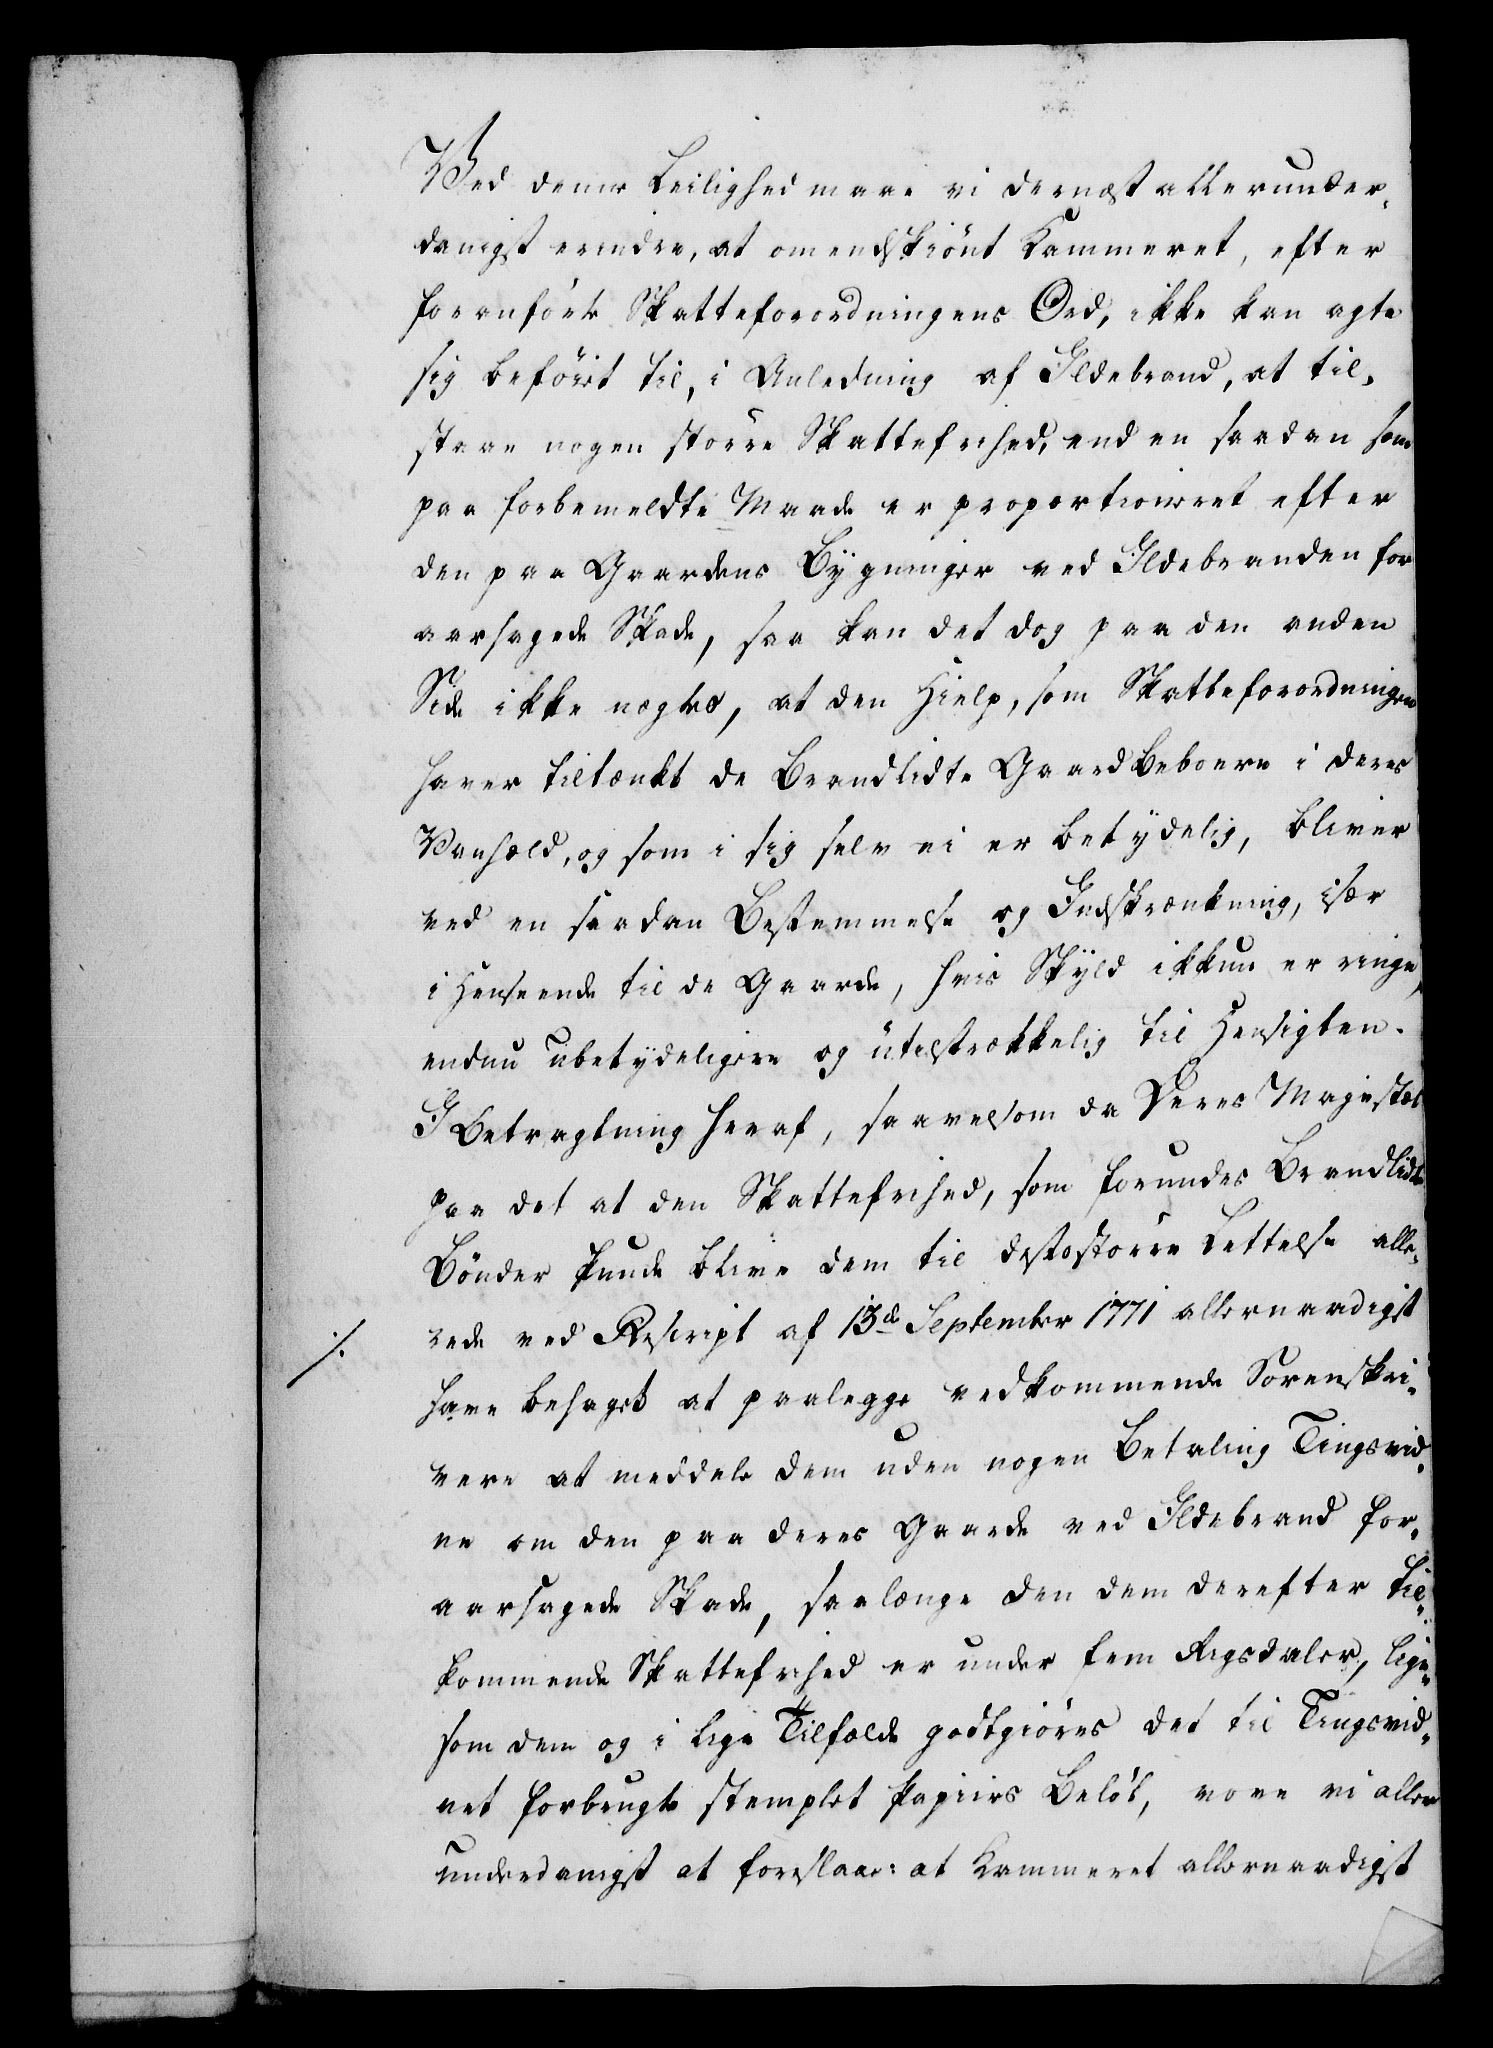 Ved denne Leilighed maae vi dernæst allerunder-
danigst erindre, at omendskiönt Kammeret, efter
foranförte Skatteforordningens Ord, ikke kan agte
sig beföiet til, i Anledning af Ildebrand, at til-
staae nogen större Skattefrihed, end en saadan som
paa forbemeldte Maade er proportioneret efter
den paa Gaardens Bÿgninger ved Ildebranden for
aarsagede Skade, saa kan det dog paa den anden
Side ikke nægtes, at den Hielp, som Skatteforordningen
haver tiltænkt de Brandlidte Gaardbeboere i deres
Vanheld, og som i sig selv ei er betÿdelig, bliver
ved en saadan Bestemmelse og Indskrænkning, især
i Henseende til de Gaarde, hvis Skÿld ikkun er ringe,
endnu ubetÿdeligere og utilstrækkelig til Hensigten.
I Betragtning heraf, saavelsom da Deres Majestæt
paa det at den Skattefrihed, som forundes Brandlidte
Bönder kunde blive dem til destostörre Lettelse alle-
./. rede ved Rescript af 13de September 1771 allernaadigst
have behaget at paalegge vedkommende Sorenskri-
vere at meddele dem uden nogen Betaling Tingsvid-
ne om den paa deres Gaarde ved Ildebrand for-
aarsagede Skade, saalænge den dem derefter til-
kommende Skattefrihed er under fem Rigsdaler, lige-
som dem og i lige Tilfælde godtgiöres det til Tingsvid-
net forbrugte stemplet Papiirs Belöb, vove vi aller
underdanigst at foreslaae: at Kammeret allernaadigst